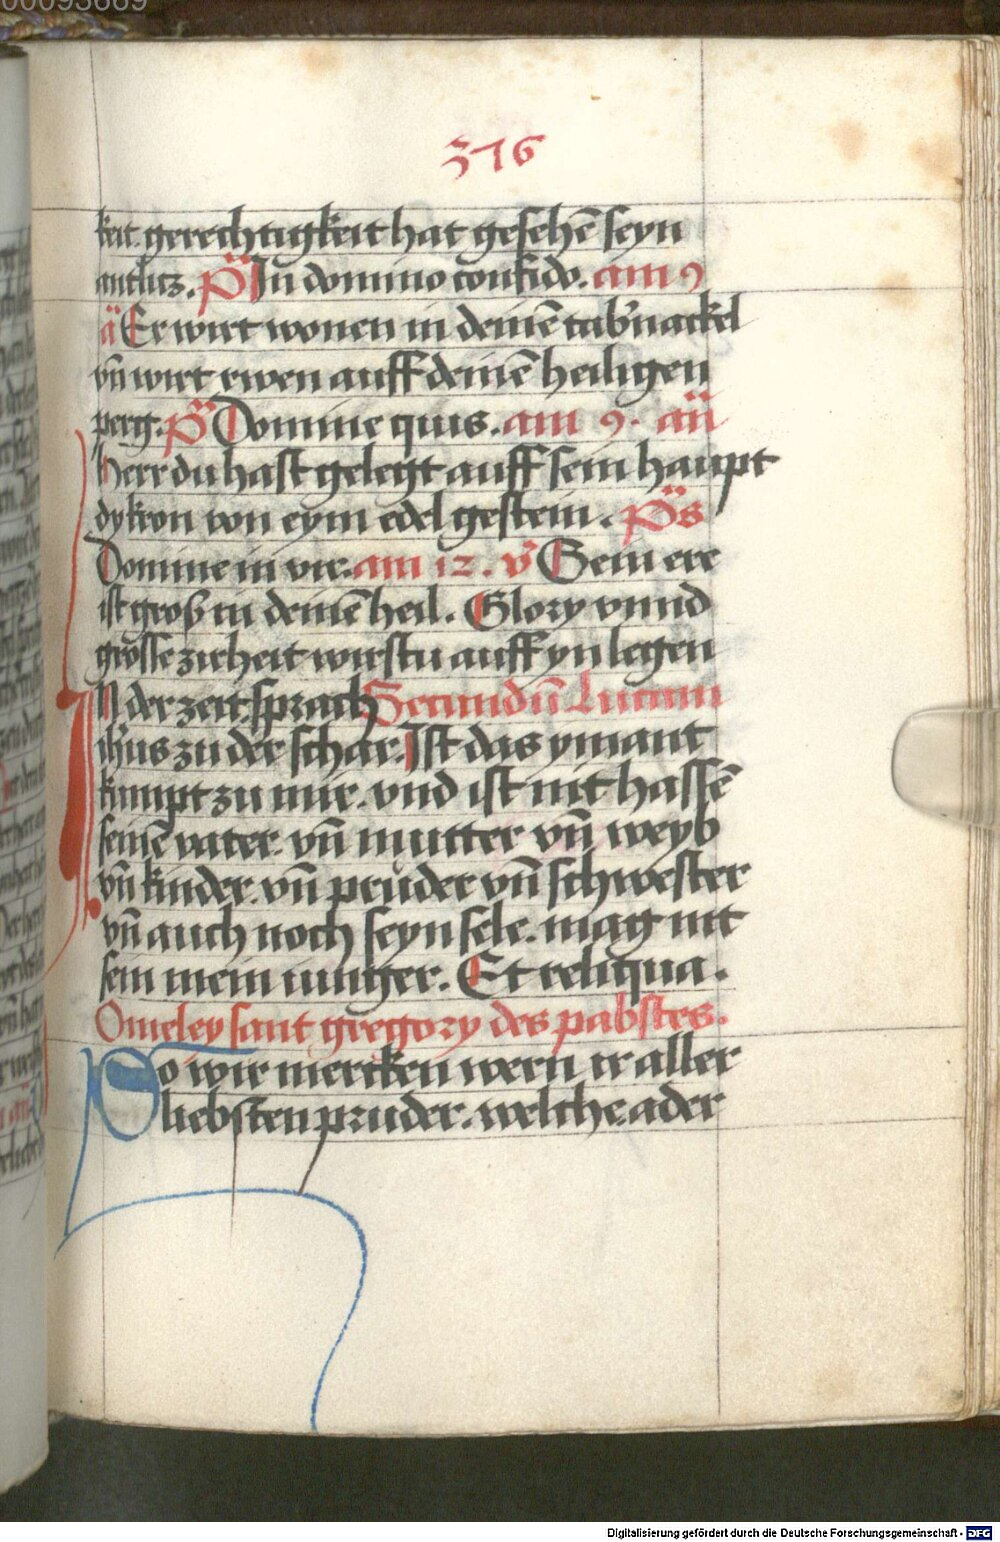 00093669
376
keit gerechtigkeit hat gesehē seyn
antlicz. Ps In domino confido. am 9
a Er wirt wonen in deinē tab'nackel
vn̄ wirt rwen auff deinē heiligen
perg. Ps Domine quis. am 9. an̄
Herr du hast gelegt auff sein haupt
dy kron von eym edel gestein. Ps
Domine in vir. am 12. v' Sein ere
ist groß in deinē heil. Glory vnnd
grosse zirheit wirstu auff yn legen
In der zeit sprach Secundū Lucam
ih'us zu der schar. Ist das ymant
kumpt zu mir. vnd ist nit hassē
seinē vater. vn̄ mutter vn̄ weyb
vn̄ kinder. vn̄ průder vn̄ schwester
vn̄ auch noch seyn sele. mag nit
sein mein iunger. Et reliqua.
Omeley sant gregory des pabstes.
So wir mercken wern ir aller
liebsten pruder. welche ader
Digitalisierung gefördert durch die Deutsche Forschungsgemeinschaft - DFG